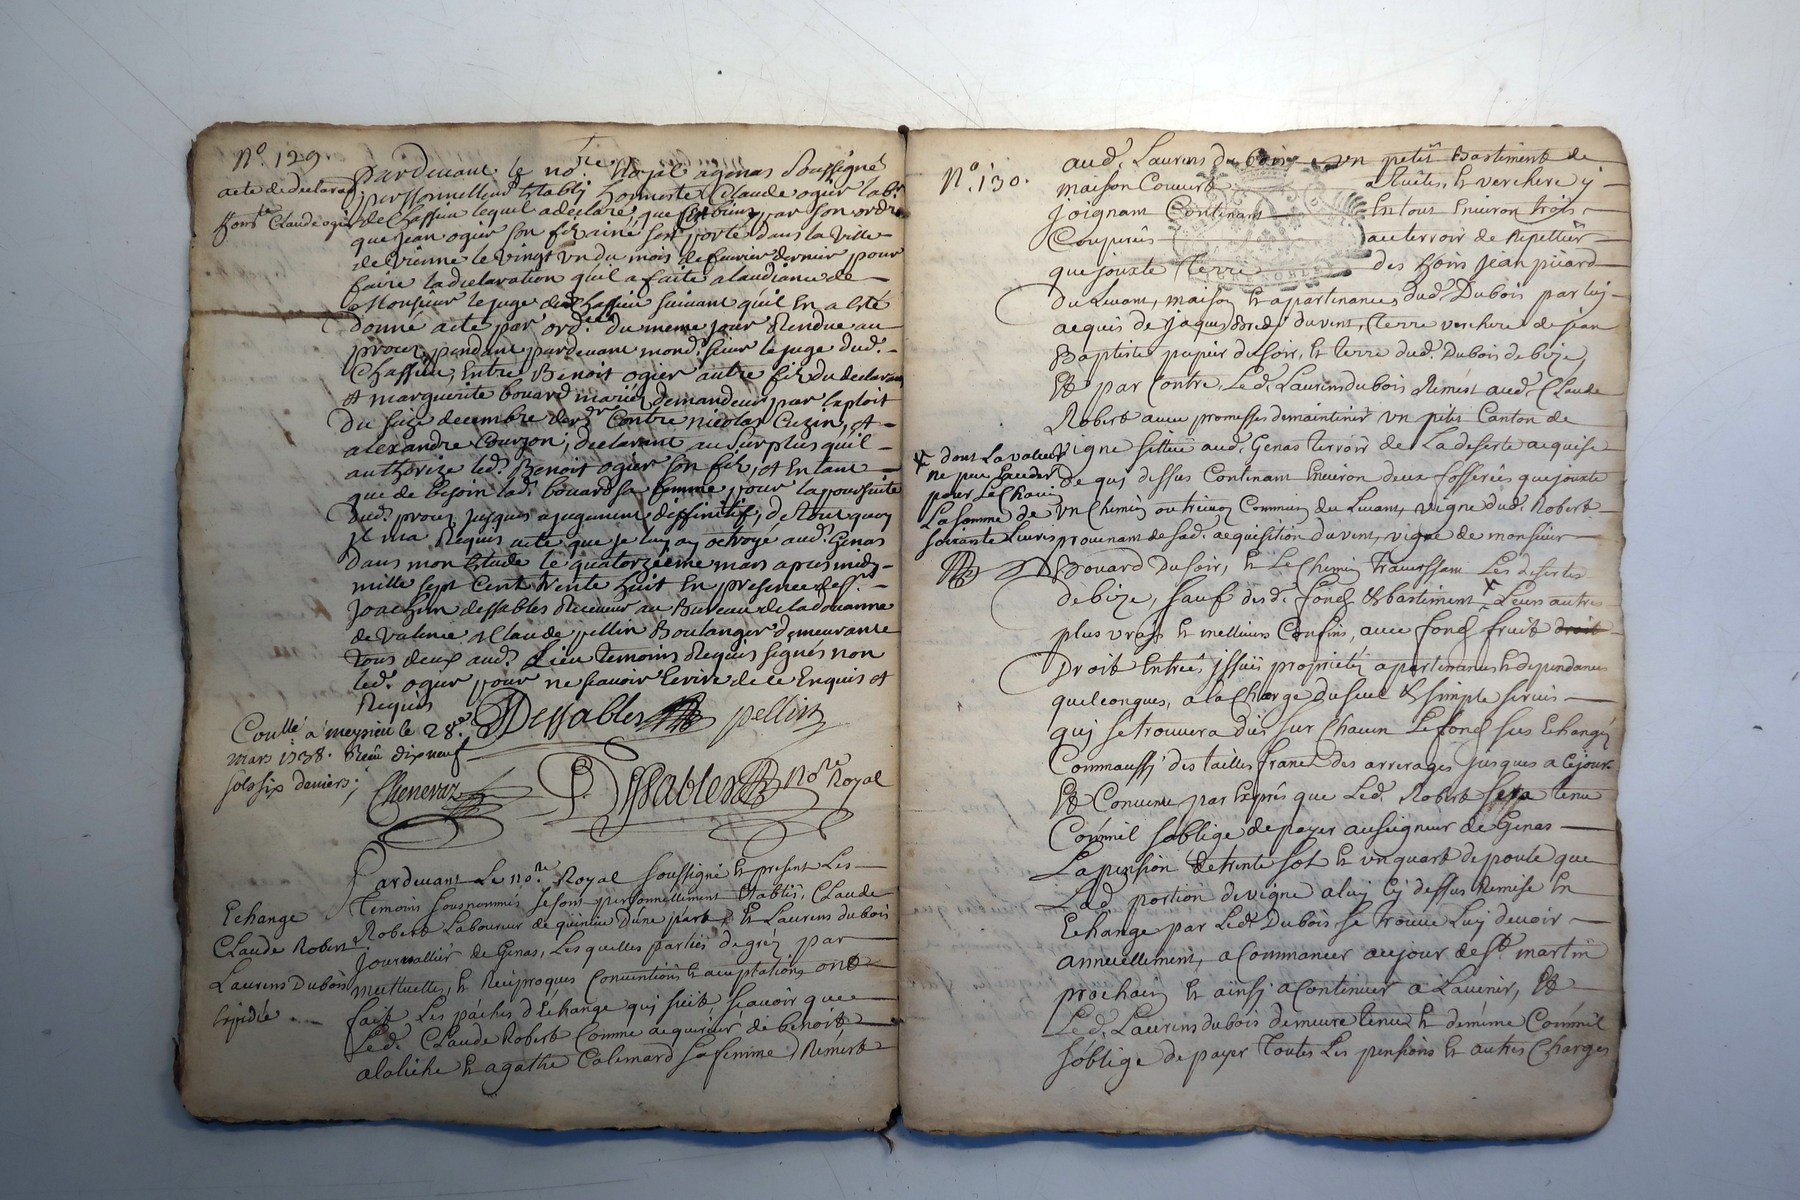 N.º 129.
acte de declaraõn
honte Claude ogier
Pardevant le no.re Royal a genas soussigné
personnellemt Etably honneste Claude ogier labr
de Chassieu lequel a declaré, que s'est bien par son ordre
que jean ogier son fils ainé s'est porté dans la ville
de vienne le vingt un du mois de fevrier dernier pour
faire la declaration qu'il a faite a laudiance de
Monsieur le juge dud. Chassieu suivant qu'il En a esté
donné acte par ord.ce du meme jour Rendue au
procez pendant pardevant mond. sieur le juge dud.
Chassieu, Entre Benoit ogier autre fils du declarant
et marguerite bouard mariés demandeurs par Exploit
du seize decembre der.r Contre nicolas Cuzin, et
alexandre Courzon, declarant au surplus qu'il
authorize led. Benoit ogier son fils, et En tant
que de besoin lad. bouard sa femme pour la poursuite
dud. procez jusques a jugement deffinitif, de tout quoy
il m'a Requis acte que je luy ay octroyé aud. Genas
dans mon Etude le quatorzieme mars apres midy
mille sept Cent trente huit En presence de s.r
Joachim dessables Receveur au Bureau de la douanne
de valence et Claude pellin Boulanger demeurants
tous deux aud. Lieu temoins Requis signés non
led. ogier pour ne scavoir Ecrire de ce Enquis et
Requis
Dessables pellin
Con.llé a meyzieu le 28.e
mars 1738. Receu dix neuf
sols six deniers;
Chenevaz
Dessables no.re Royal
Echange
Claude Robert
Laurens Dubois
Expediée
Pardevant Le no.re Royal soussigné et present Les
Temoins sousnommés se sont personnellement Etablis, Claude
Robert Laboureur de quincieu D'une part, et Laurens dubois
journallier de Genas, Lesquelles parties de gréz par
muttuelles, et Reciproques Conventions et acceptations ont
fait Les paches d'Echange quy suit scavoir que
Led. Claude Robert Comme acquereur de benoit
alaliche et agathe Calemard sa femme, Remet
N.º 130.
aud. Laurens du bois un petit Bastiment de
maison Couvert a tuiles, et verchere y
joignant Contenant En tout Environ trois
Coupures au terroir de Repellier
que jouxte terre des hoirs jean picard
du Levant, maison et apartenances dud. Dubois par luy
acquis de jaques du vent, terre verchere de jean
Baptiste papier du soir, et terre dud. Dubois de bize,
Et par Contre, Led. Laurens dubois Remet aud. Claude
Robert avec promesses de maintenir un petit Canton de
vigne sittué aud. Genas terroir de La deserte acquise
de qui dessus Contenant Environ deux fosserés que jouxte
un Chemin ou treivoz Commun du Levant, vigne dud. Robert
provenant de sad. acquisition du vent, vigne de monsieur
Bouard du soir, et Le Chemin Traverssant Les desertes
de bize, sauf desd. fonds et bastiment × Leurs autres
plus vrays et meilleurs Confins, avec fond fruit droit
Droit Entrées issuës proprietés apartenances et dependances
quelconques, a la Charge du suel et simple servis
quy se trouvera dus sur Chacun Le fond sus Echangés
Commaussy des tailles francs des arrerages jusques a ce jour
Et Convenu par Exprés que Led. Robert sera tenu
Comm'il s'oblige de payer au seigneur de Genas
La pension de trente sol et un quart de poule que
Lad. portion de vigne a luy cy dessus Remise En
Echange par Led. Dubois se trouve Luy devoir
annuellement, a Commancer au jour de St. martin
prochain et ainsy a Continuer a Lavenir, Et
Led. Laurens dubois demeure tenu et de même Comm'il
s'oblige de payer Toutes Les pensions et autres Charges
× dont La valleur
ne peut Exceder
pour Le Chacun
La somme de
soixante Livres